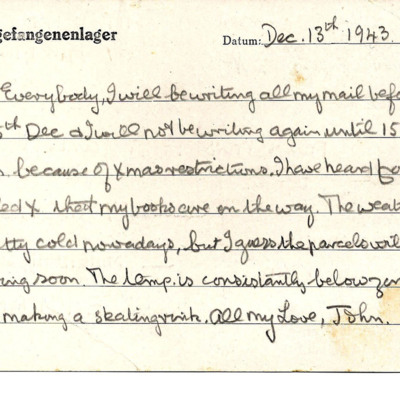 gefangenenlager
Datum: Dec. 13th 1943.
Everybody, I will be writing all my mail bef
th Dec & I will not be writing again until 15
because of Xmas restrictions. I have heard
X that my books are on the way. The weat
tty cold nowadays, but I guess the parcels
ing soon. The temp. is consistantly below zer
making a skating rink. All my Love, John.